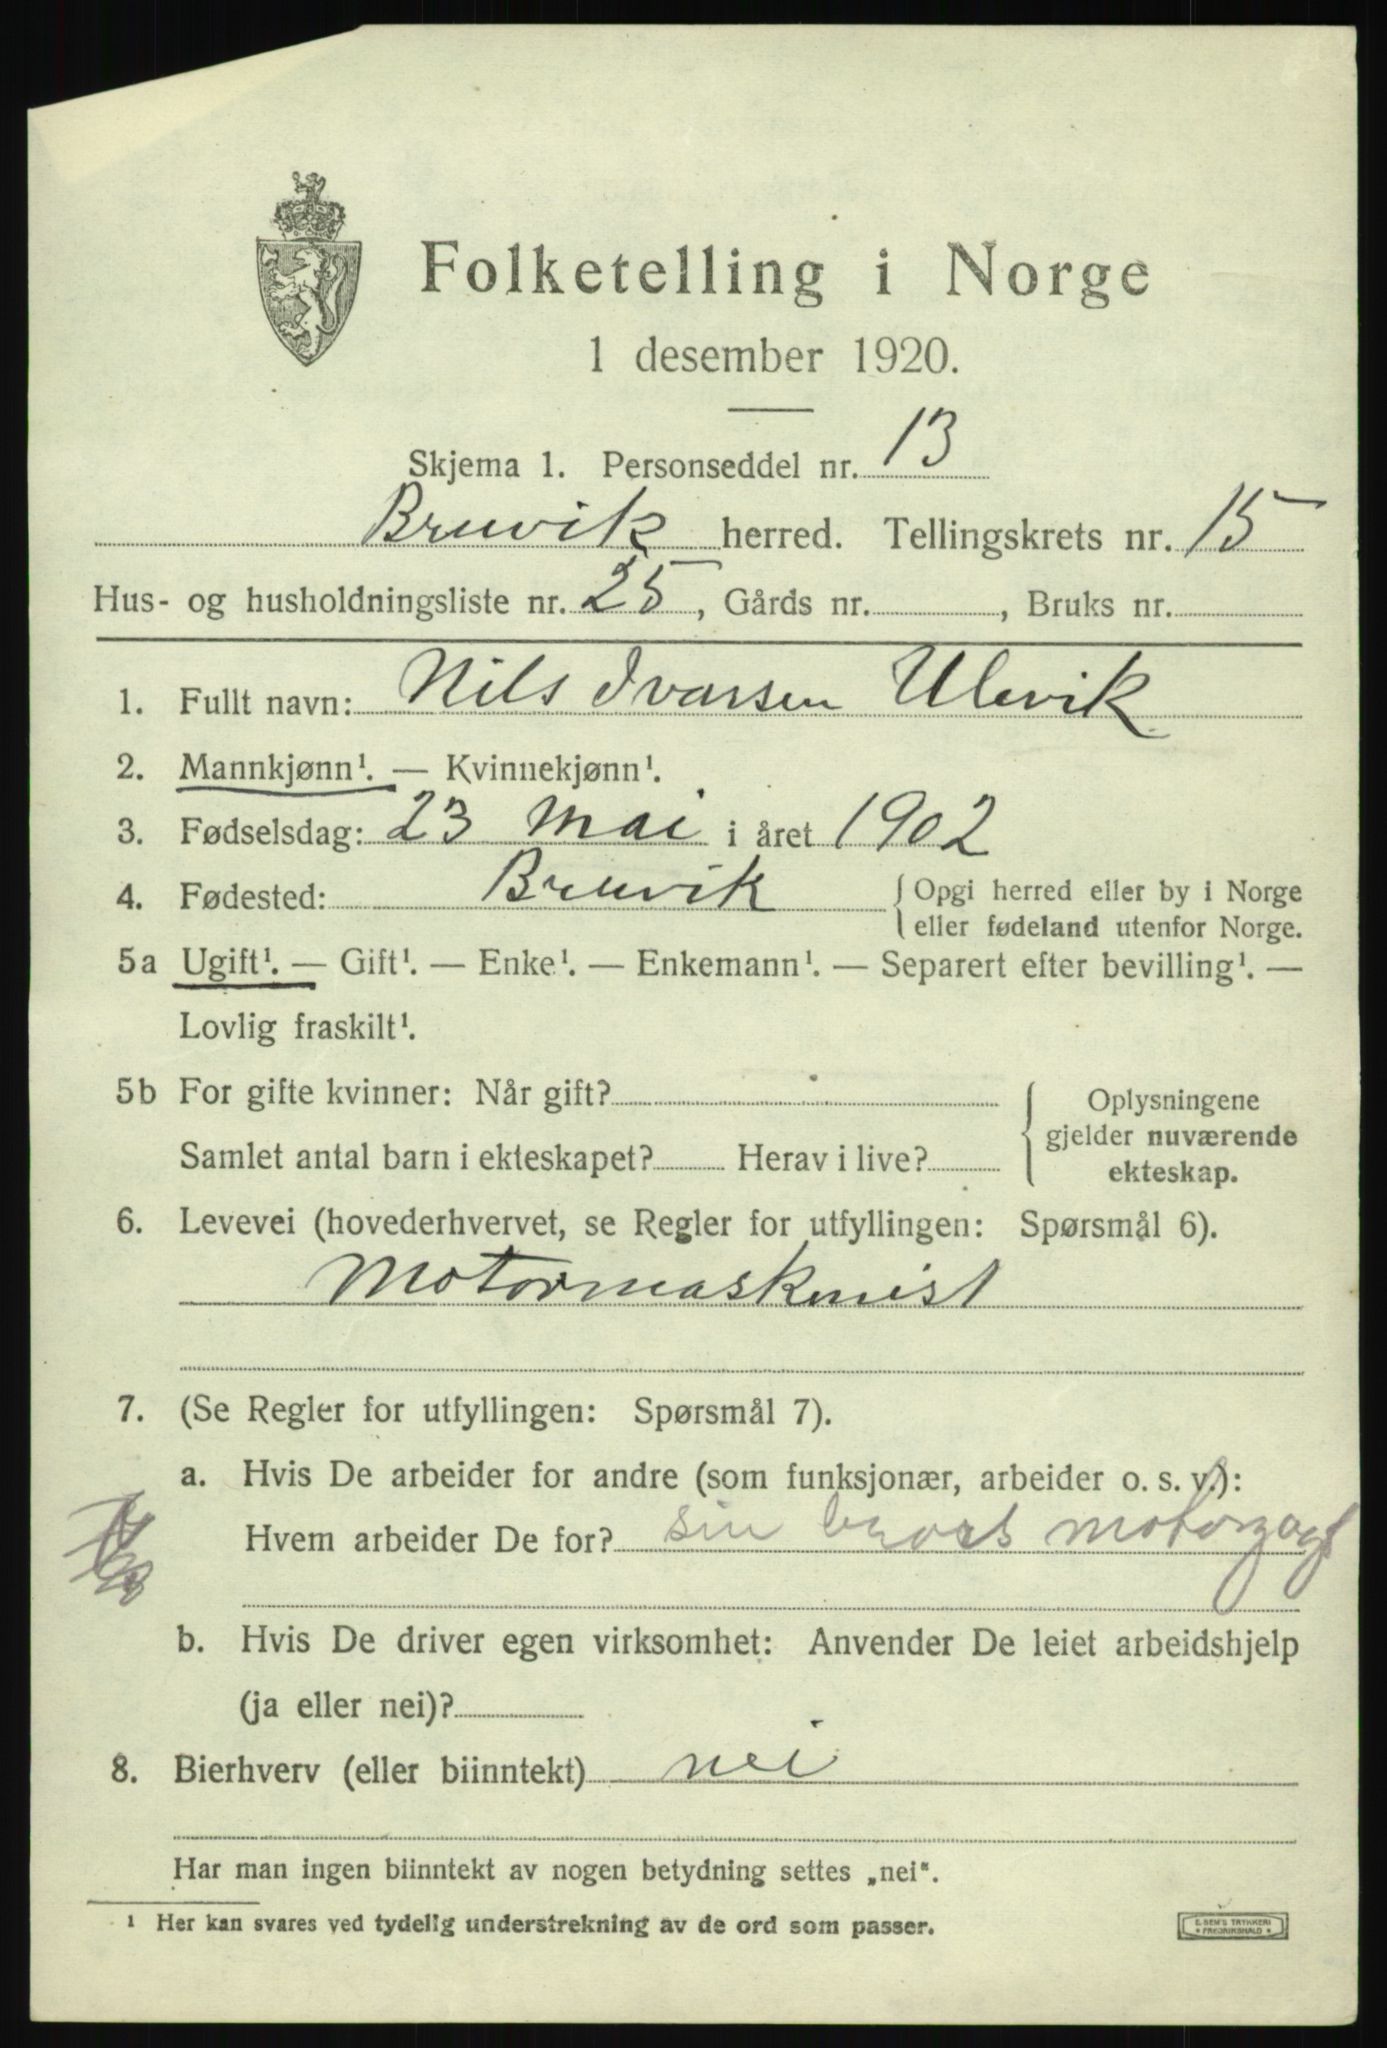 Folketelling i Norge
1 desember 1920.
Skjema 1. Personseddel nr. 13
Bruvik herred. Tellingskrets nr. 15
Hus- og husholdningsliste nr. 25, Gårds nr. , Bruks nr.
1. Fullt navn: Nils Ivarsen Ulevik
2. Mannkjønn¹. — Kvinnekjønn¹.
3. Fødselsdag: 23 mai i året 1902
4. Fødested: Bruvik { Opgi herred eller by i Norge
eller fødeland utenfor Norge.
5a Ugift¹. — Gift¹. — Enke¹. — Enkemann¹. — Separert efter bevilling¹. —
Lovlig fraskilt¹.
5b For gifte kvinner: Når gift?
Samlet antal barn i ekteskapet? Herav i live?
{ Oplysningene
gjelder nuværende
ekteskap.
6. Levevei (hovederhvervet, se Regler for utfyllingen: Spørsmål 6).
Motormaskinist
7. (Se Regler for utfyllingen: Spørsmål 7).
a. Hvis De arbeider for andre (som funksjonær, arbeider o. s. v.):
Hvem arbeider De for? sin motorjagt
b. Hvis De driver egen virksomhet: Anvender De leiet arbeidshjelp
(ja eller nei)?
8. Bierhverv (eller biinntekt) nei
Har man ingen biinntekt av nogen betydning settes „nei".
¹ Her kan svares ved tydelig understrekning av de ord som passer.
E. SEM'S TRYKKERI
* FREDRIKSHALD *